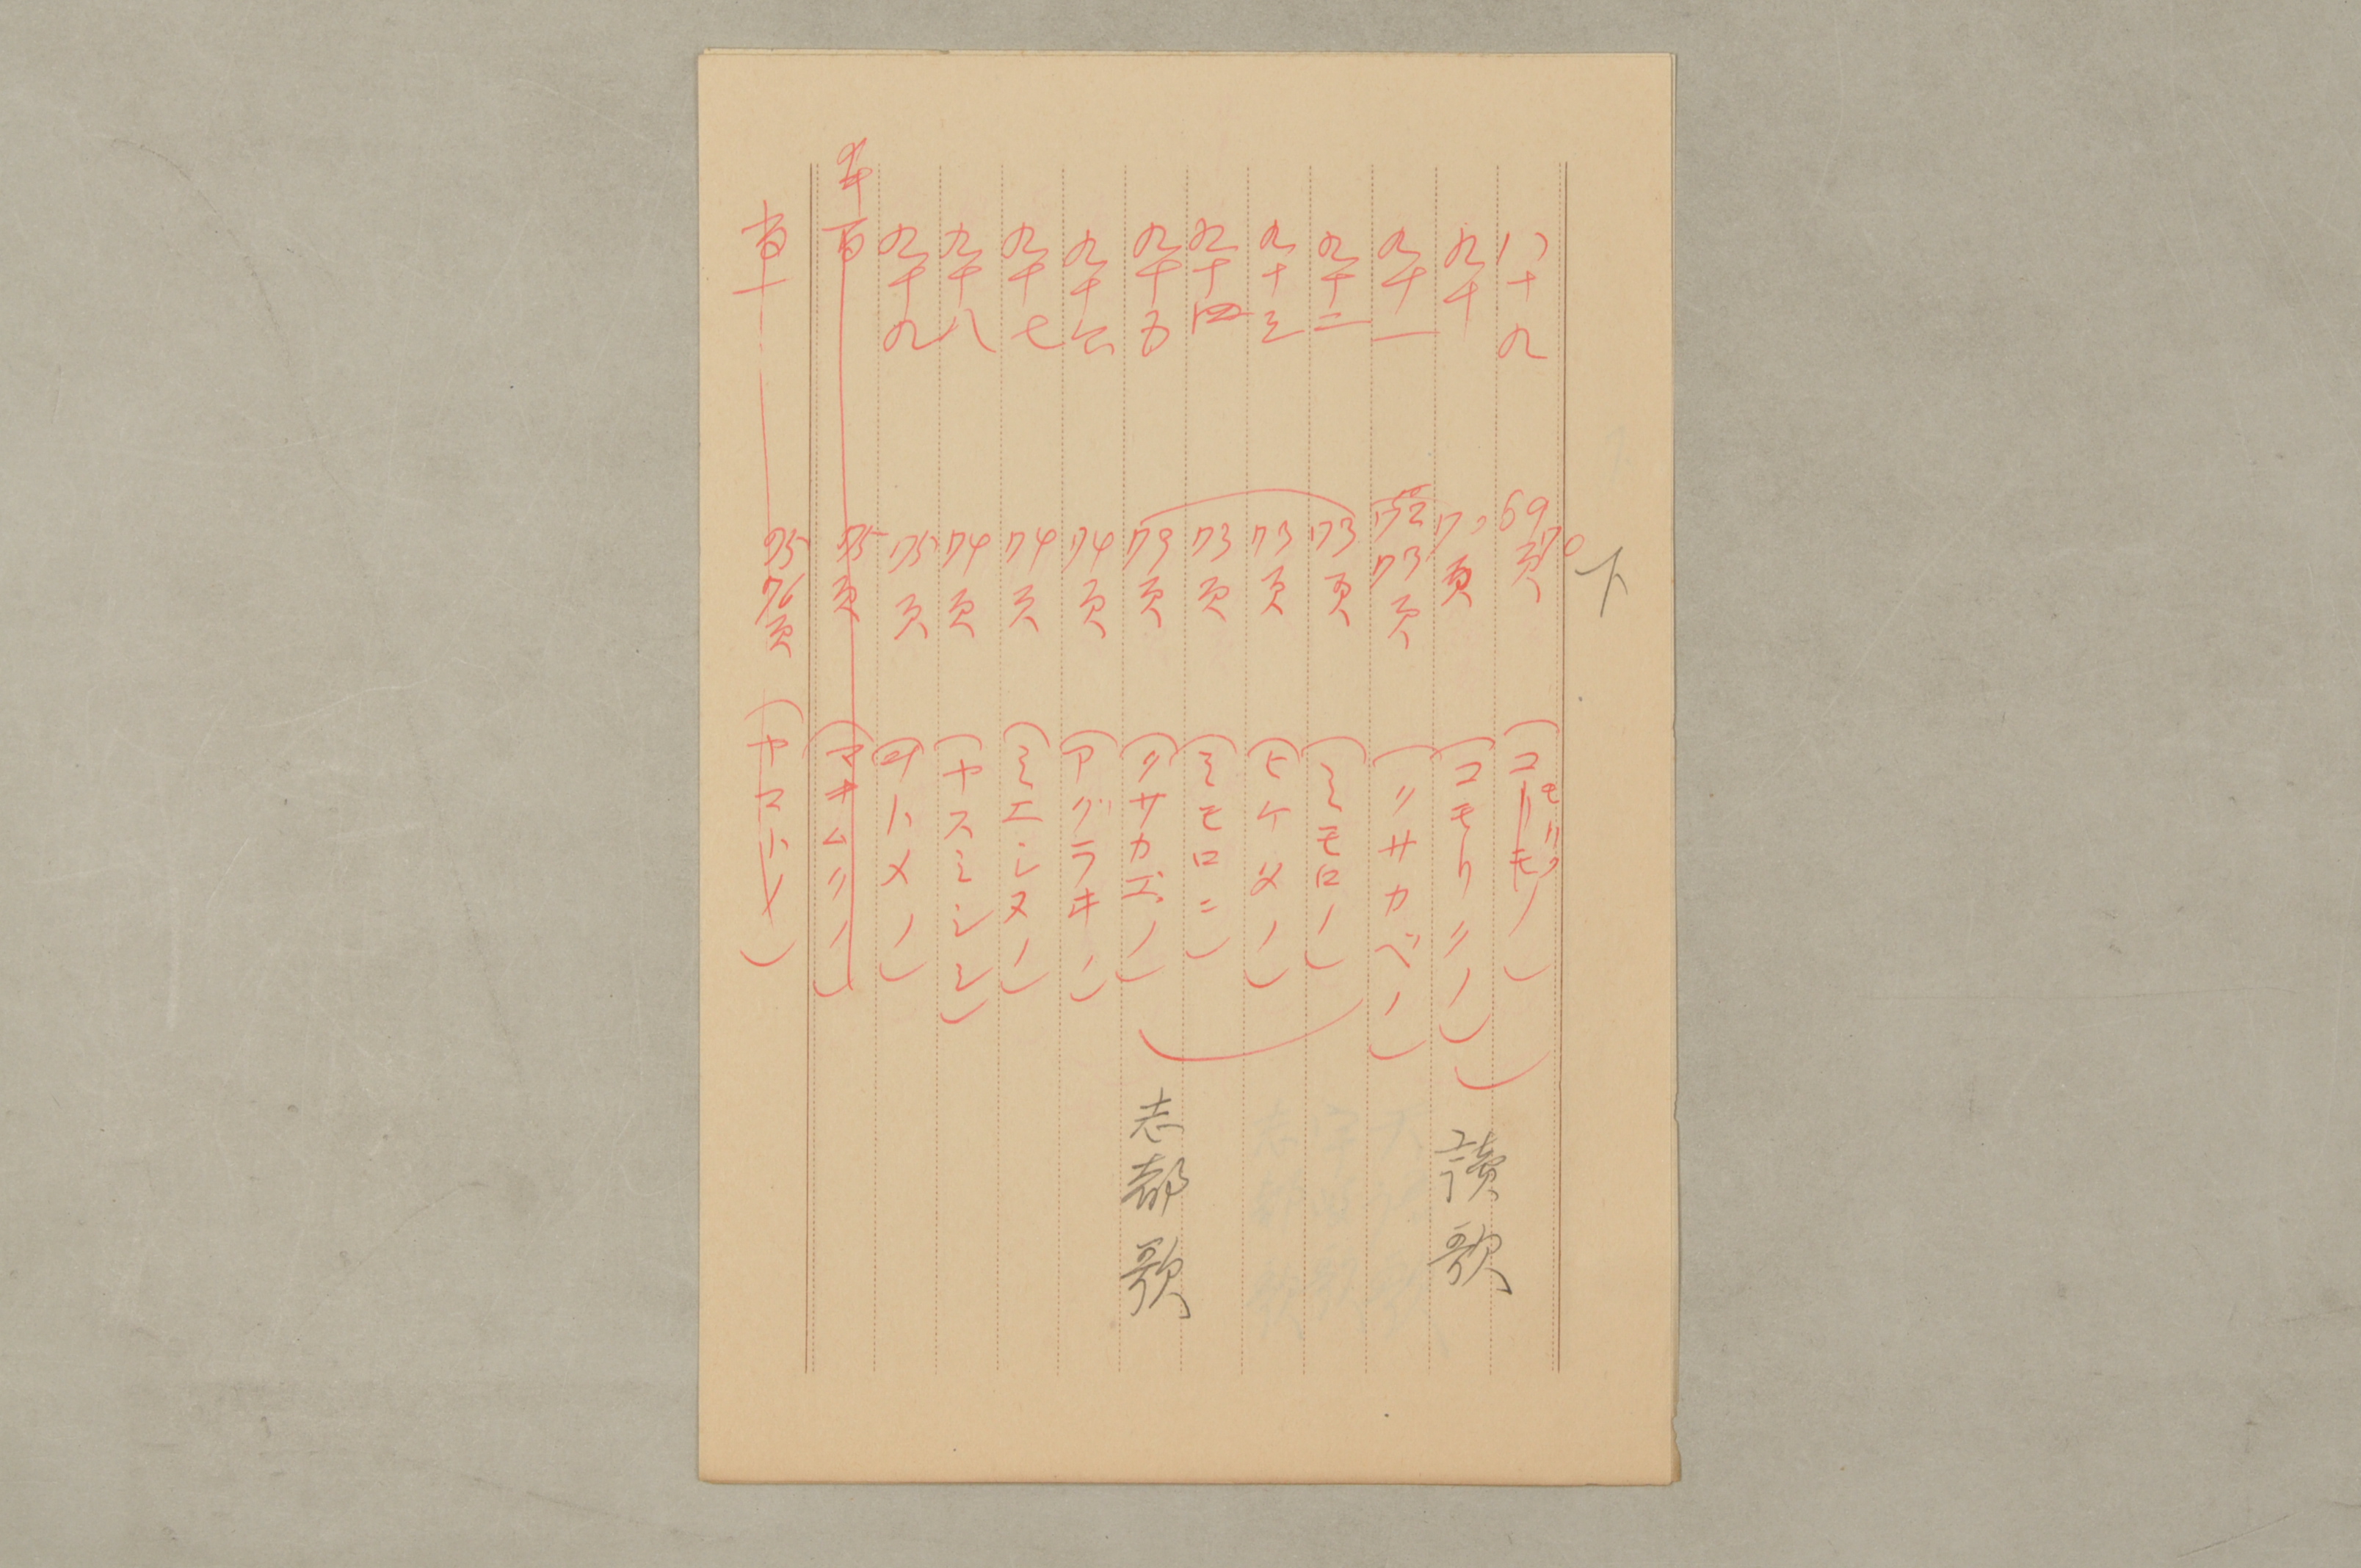 下
八十九 69 70頁 (コモリクノ)
九十 72頁 (コモリクノ) 讀歌
九十一 72 73頁 (クサカベノ)
九十二 73頁 (ミモロノ)
九十三 73頁 (ヒケタノ)
九十四 73頁 (ミモロニ)
九十五 73頁 (クサカエノ) 志都歌
九十六 74頁 (アグラヰノ)
九十七 74頁 (ミエシヌノ)
九十八 74頁 (ヤスミシシ)
九十九 75頁 (ヲトメノ)
百 75頁 (マキムクノ)
百一 75 76頁 (ヤマトメ)